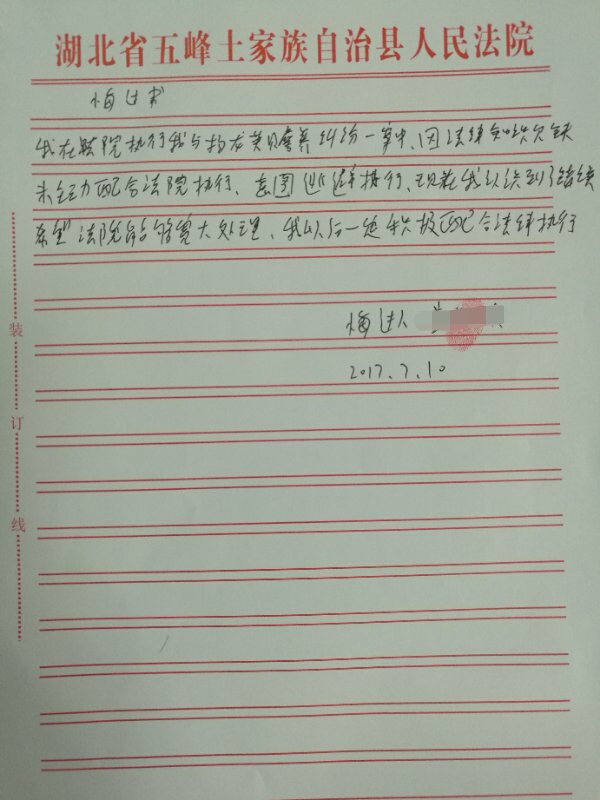 湖北省五峰土家族自治县人民法院
悔过书
我在法院执行我与杨龙英赡养纠纷一案中、因法律知识欠缺
未全力配合法院执行、意图逃避执行、现在我认识到了错误
希望法院能够宽大处理、我以后一定积极配合法律执行
悔过人
2017.7.10
装
订
线